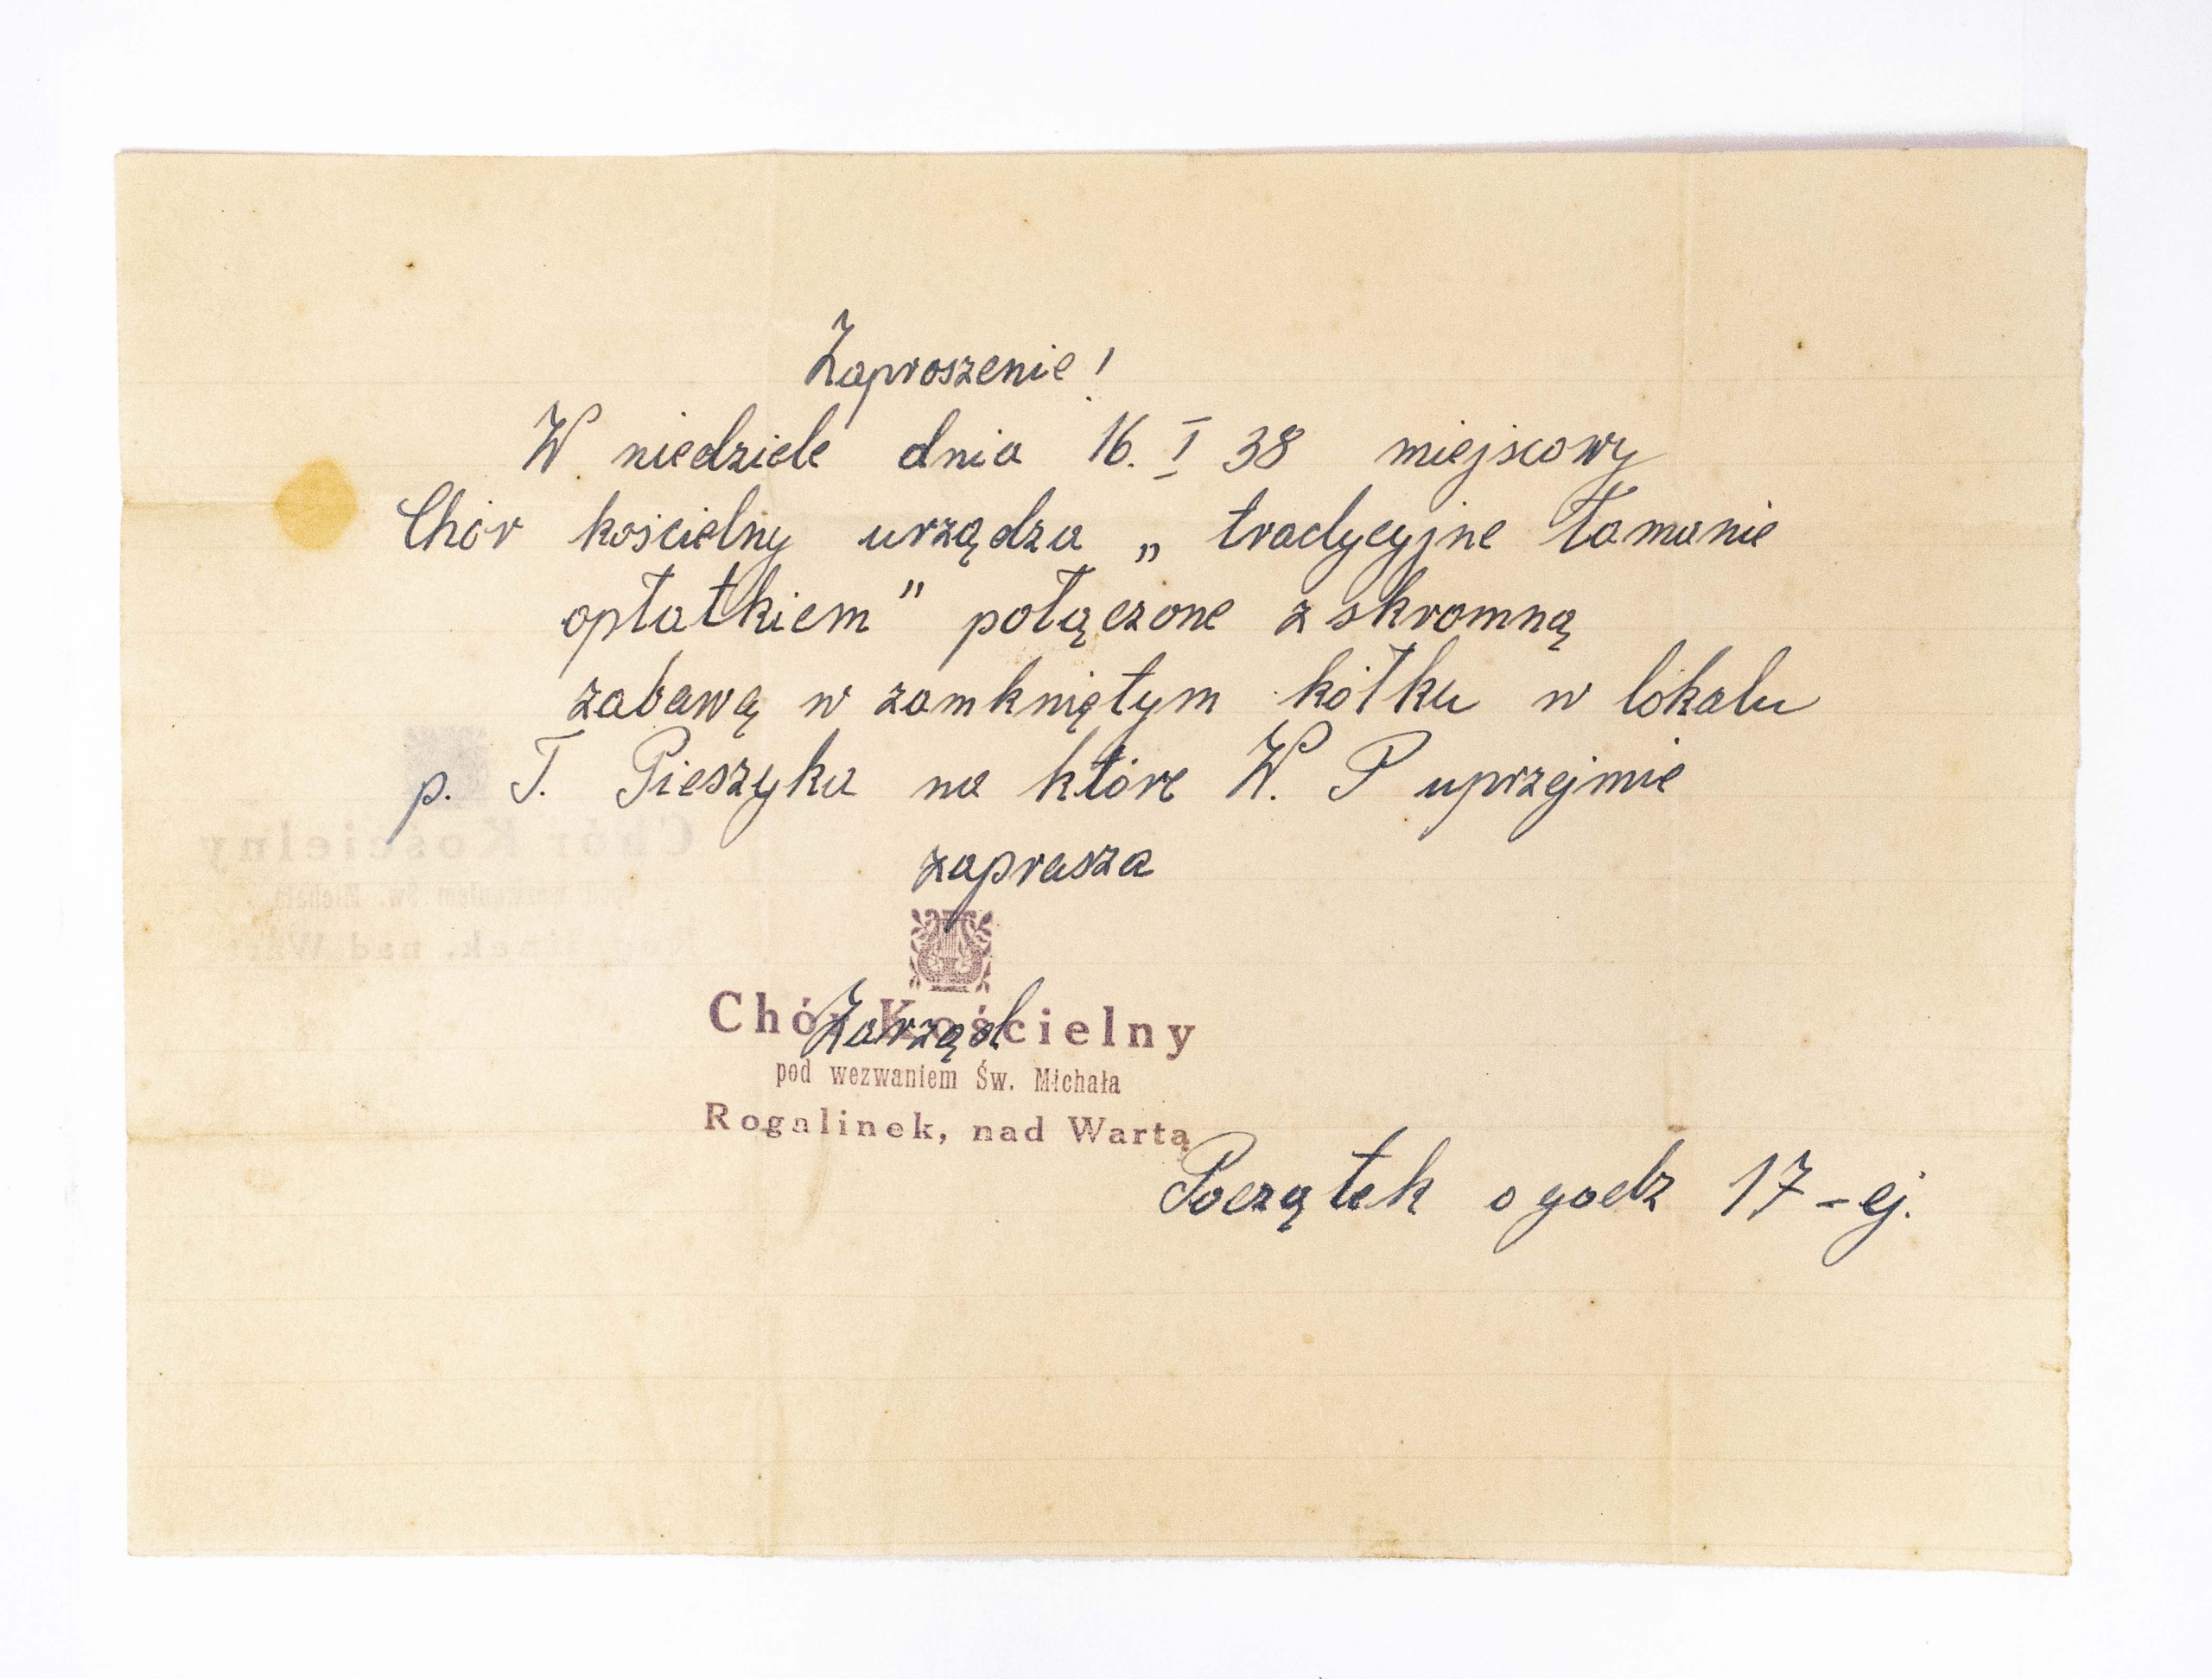 Zaproszenie!
W niedziele dnia 16. I 38 miejscowy
Chór kościelny urządza „tradycyjne łamanie
opłatkiem" połączone z skromną
zabawą w zamkniętym kółku w lokalu
p. T. Pieszyka na które W. P uprzejmie
zaprasza
Chór Kościelny
Zarząd
pod wezwaniem Św. Michała
Rogalinek, nad Wartą
Początek o godz 17-ej.